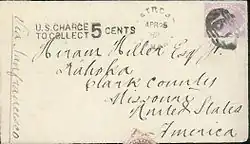 Via San francisco
U.S. CHARGE
TO COLLECT 5 CENTS
APR 25
Hiram Miller Esqr Jr.
Kahoka
Clark County
Missouri
United States
America